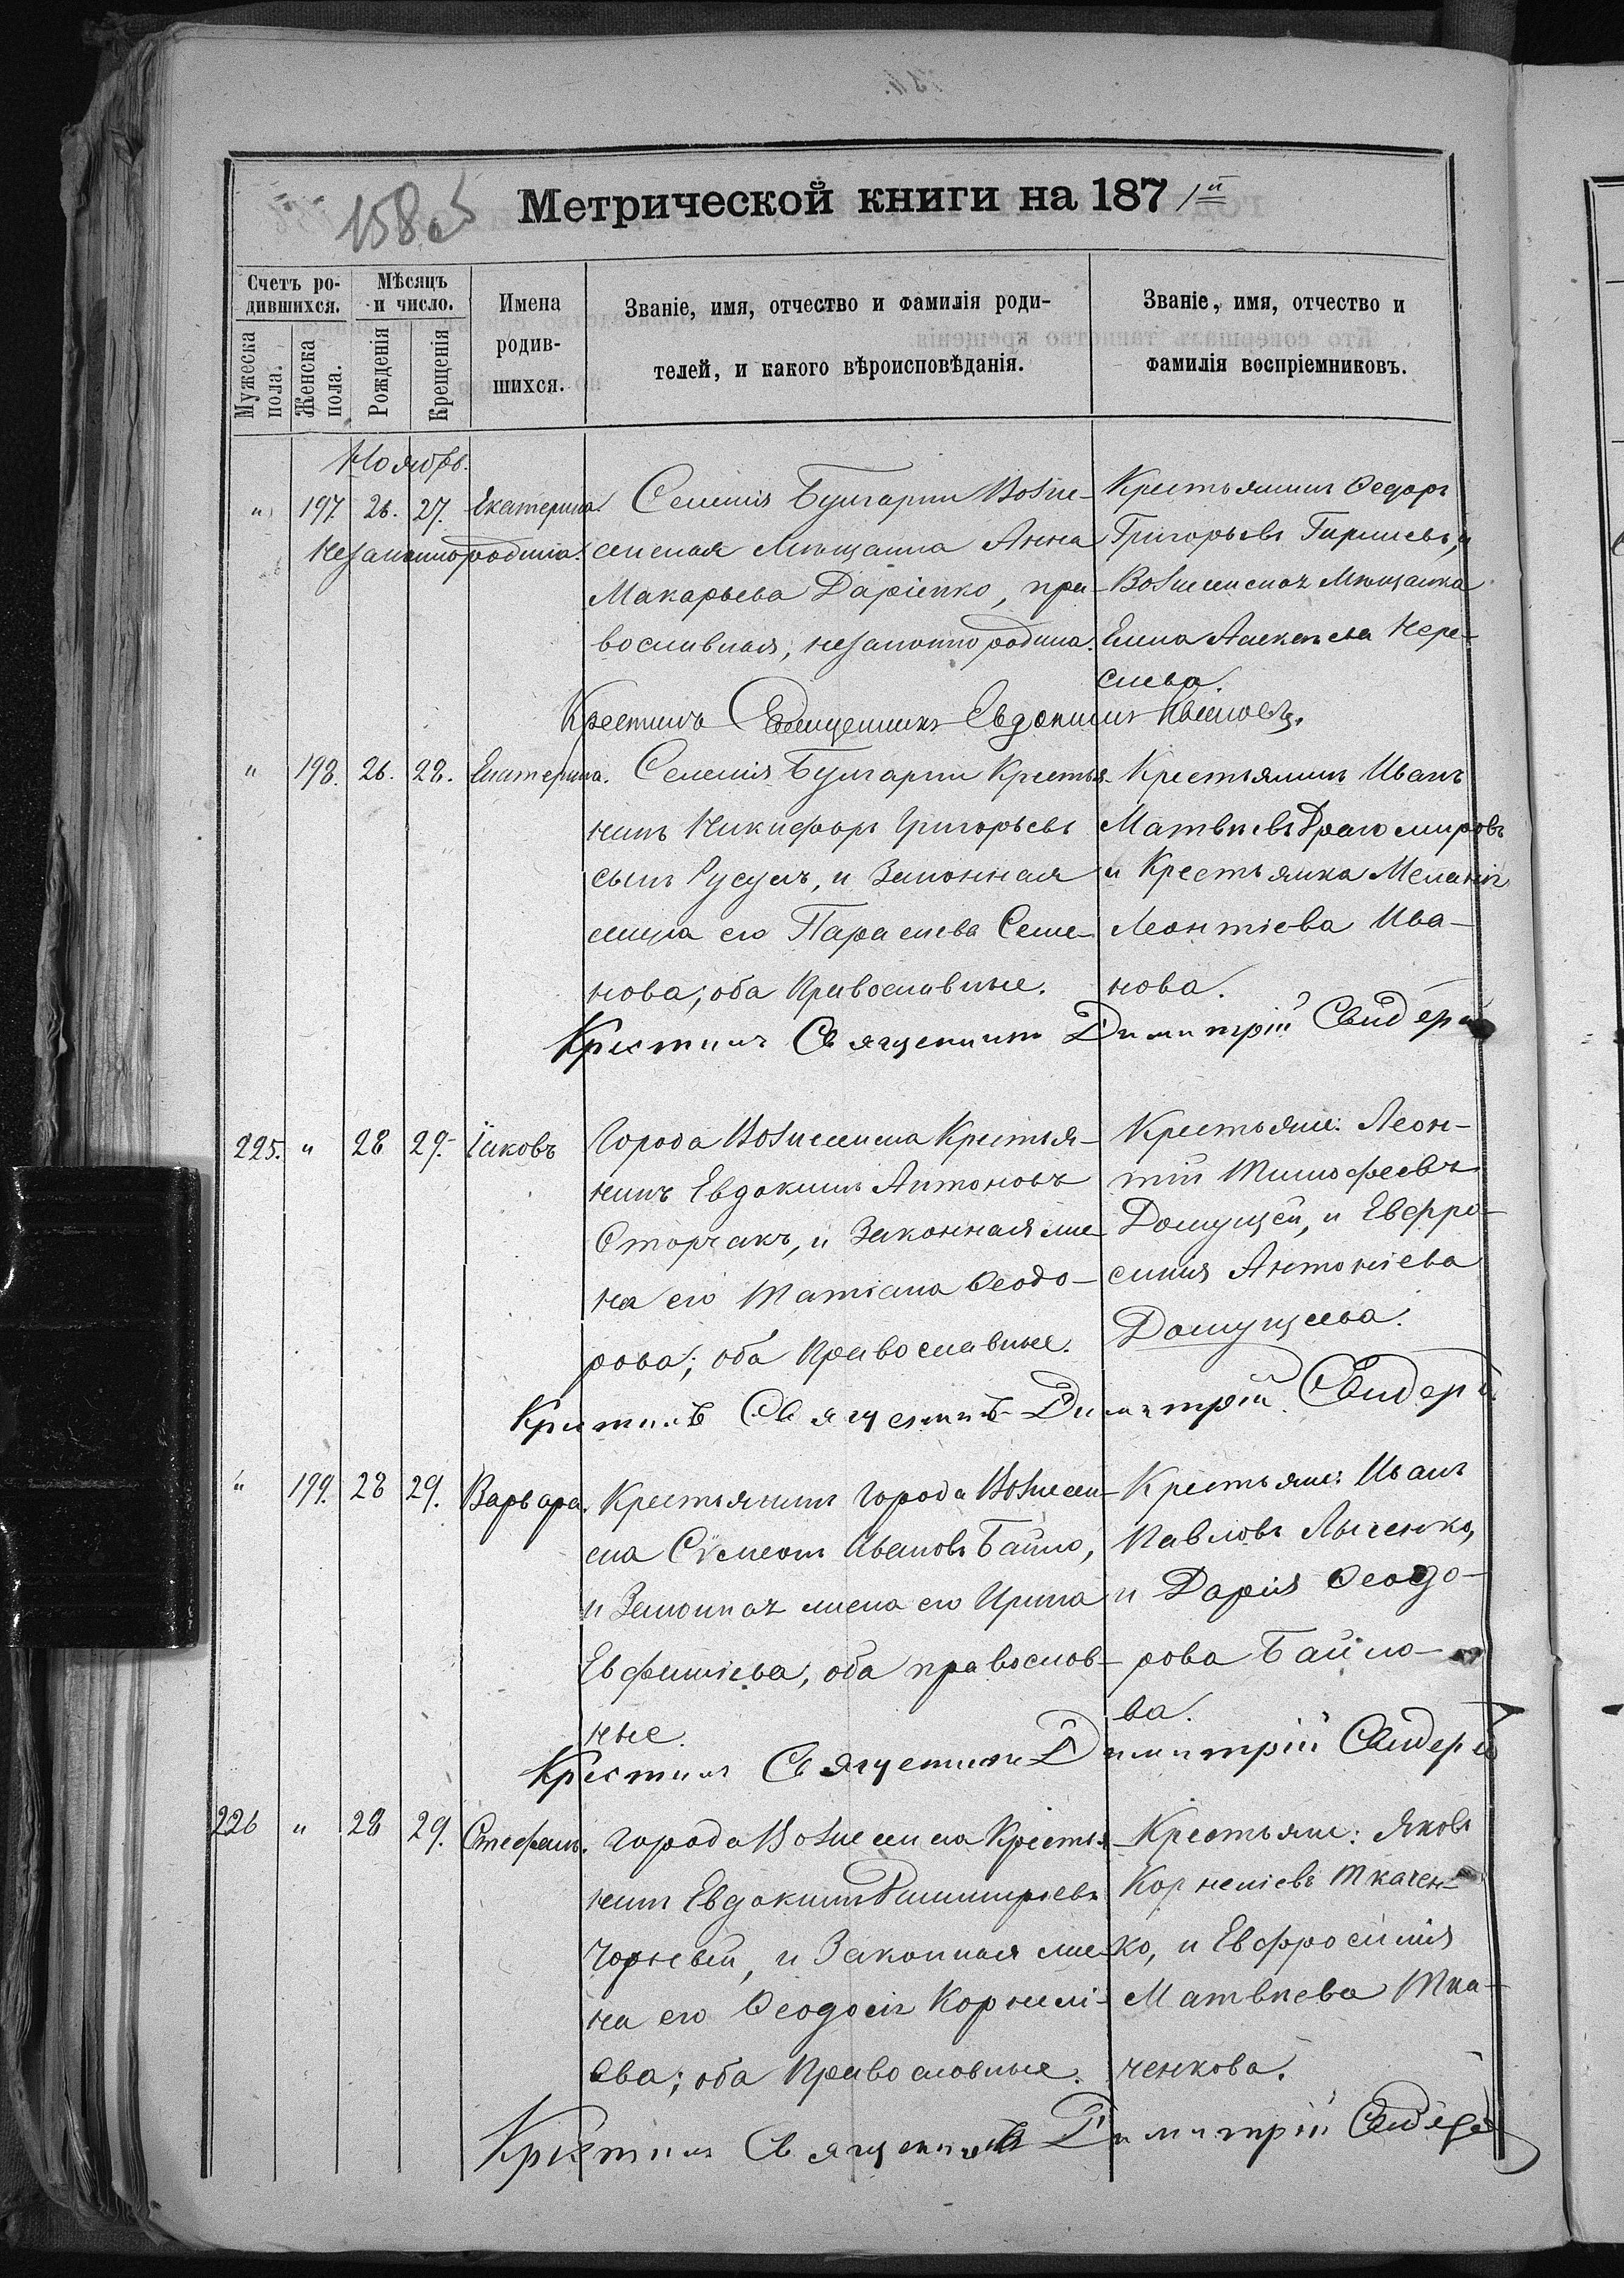 158 об
Метрической книги на 1871й
Счетъ ро-
дившихся.
Мужеска
пола.
Женска
пола.
Мѣсяцъ
и число.
Рожденія
Крещенія
Имена
родив-
шихся.
Званіе, имя, отчество и фамилія роди-
телей, и какого вѣроисповѣданія.
Званіе, имя, отчество и
фамилія воспріемниковъ.
Ноябрь.
" 197. 26. 27. Екатерина.
Незаконнорождена.
Селенія Булгарки Возне-
сенская Мѣщанка Анна
Макарьева Дарiенко, пра-
вославная, незаконнорождена.
Крестьянинъ Ѳедоръ
Григорьевъ и
Вознесенская Мѣщанка
Елена Алексѣева
Крестилъ Священникъ Евдокимъ
" 198. 26. 28. Екатерина.
Селенія Булгарки Крестья-
нинъ Никифоръ Григорьевъ
сынъ Русулъ, и Законная
жена его Параскева Семе-
нова; оба Православные.
Крестьянинъ Иванъ
Матвѣевъ Драгомировъ
и Крестьянка Меланія
Леонтіева Ива-
нова.
Крестилъ Священникъ Димитрій Свидерскій
225. " 28 29. Іаковъ
Города Вознесенска Крестья-
нинъ Евдокимъ Антоновъ
Сторчакъ, и Законная же-
на его Татіана Ѳеодо-
рова; оба Православные.
Крестьяне: Леон-
тій Тимофеевъ
Домущей, и Евфро-
синія Антоніева
Домущеева.
Крестилъ Священникъ Димитрій Свидерскій
" 199. 28 29. Варвара.
Крестьянинъ города Вознесен-
ска Сѵмеонъ Ивановъ Байло,
и Законная жена его Ирина
Евфиміева, оба православ-
ные.
Крестьяне: Иванъ
Павловъ Лысенко,
и Дарія Ѳеодо-
рова Байло-
ва.
Крестилъ Священникъ Димитрій Свидерскій
226 " 28 29. Стефанъ.
Города Вознесенска Крестья-
нинъ Евдокимъ Димитріевъ
Чорный, и Законная же-
на его Ѳеодосія Корнилі-
ева; оба Православные.
Крестьяне: Яковъ
Корниліевъ Ткачен-
ко, и Евфросинія
Матвѣева Тка-
ченкова.
Крестилъ Священникъ Димитрій Свидерскій